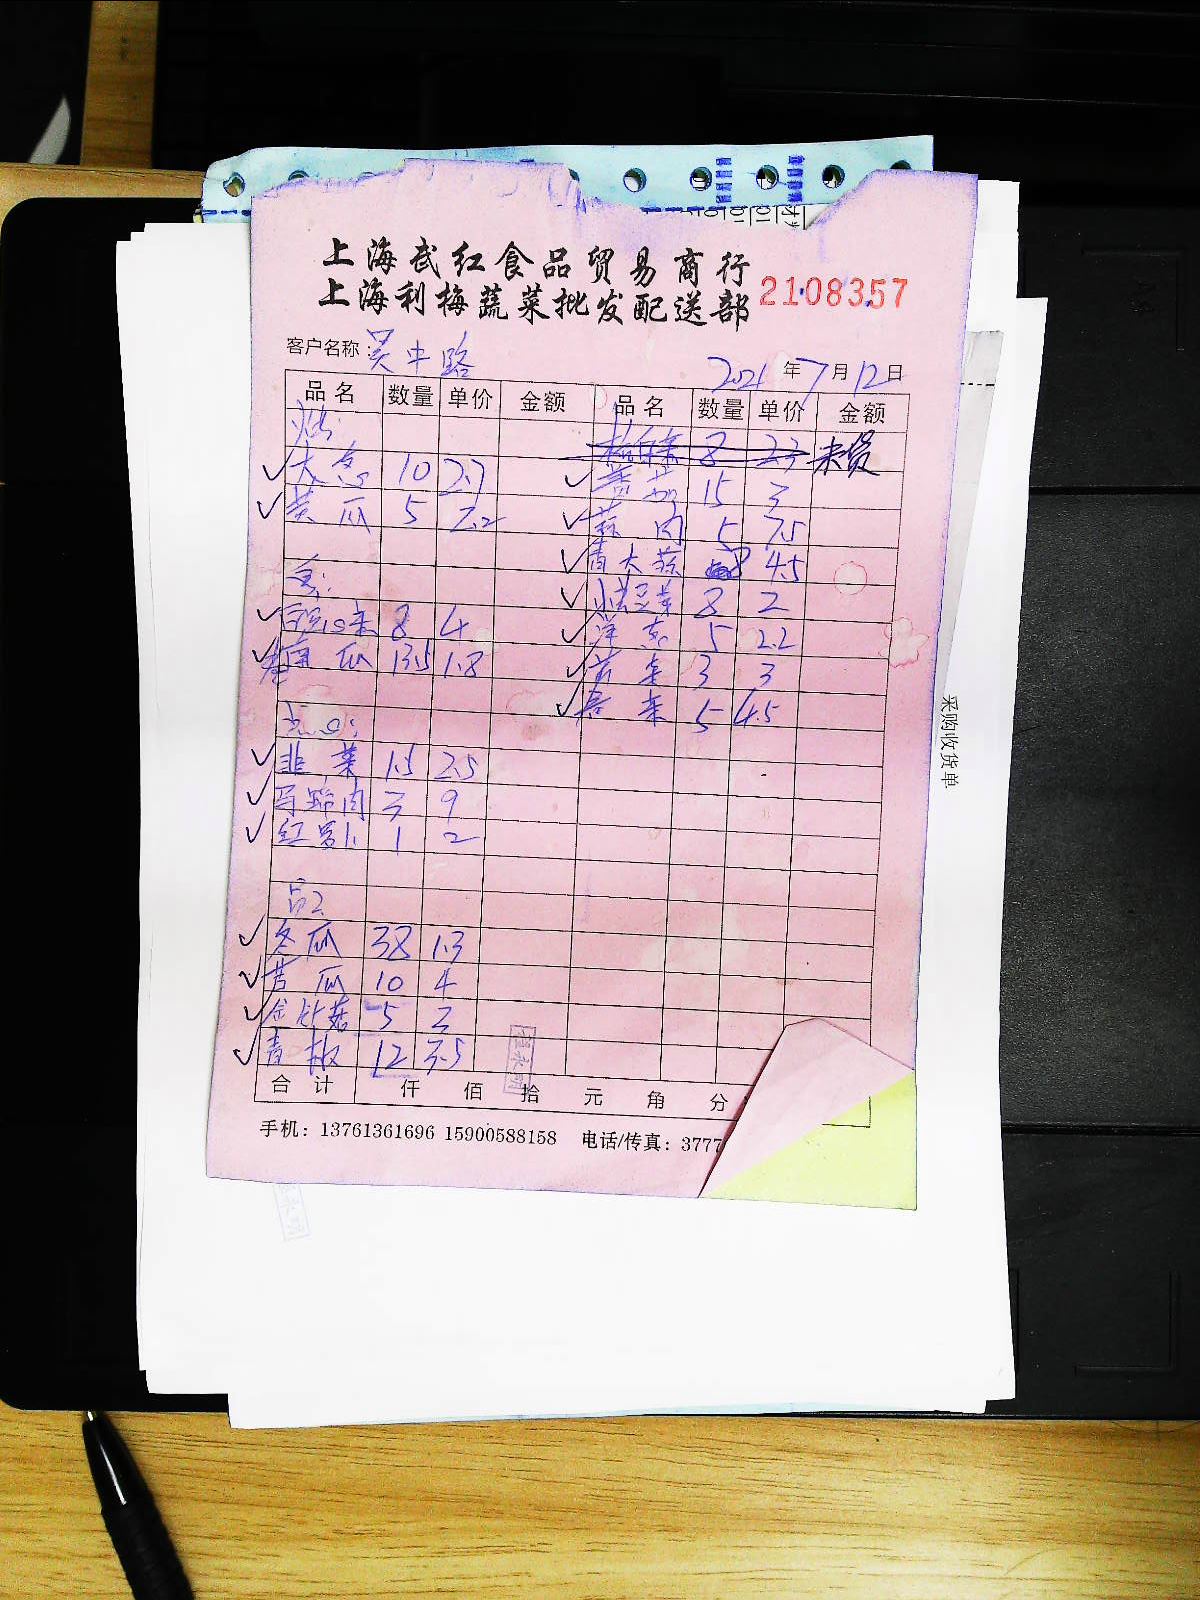 上海武红食品贸易商行
上海利梅蔬菜批发配送部
2108357
客户名称: 吴中路
2021年7月12日
品名 数量 单价 金额 品名 数量 单价 金额
8 2.3 未货
大葱 10 2.7
黄瓜 5 3.2
15 3
蒜肉 5 7.5
青大蒜 8 4.5
8 2
8 4
洋葱 5 2.2
南瓜 13.5 1.8
3 3
5 4.5
韭菜 1.5 2.5
马蹄肉 3 9
红罗卜 1 2
冬瓜 38 1.3
苦瓜 10 4
金针菇 5 2
青椒 12 3.5
合计 仟 佰 拾 元 角 分
手机: 13761361696 15900588158 电话/传真: 3777
采购收货单